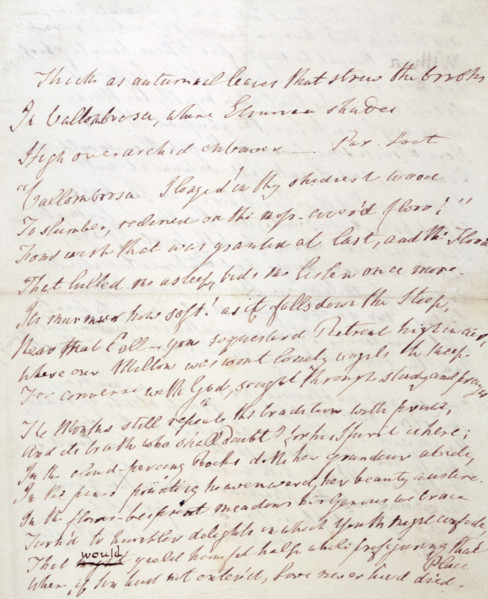 Thick as autumnal leaves that strew the brooks
In Vallombrosa, where Etrurian shades
High overarched embower — Par. Lost
"Vallombrosa I longed in thy shadiest wood
To slumber, reclined on the moss-cover'd floor!"
Fond wish that was granted at last, and the Flood
That lulled me asleep, bids me listen once more.
Its murmur how soft! as it falls down the Steep,
Near that Cell – yon sequestered Retreat high in air,
Where our Milton was wont lonely vigils to keep
For converse with God, sought through study and prayer
The Monks still repeat the tradition with pride,
And its truth who shall doubt? for his Spirit is here;
In the cloud-piercing Rocks doth her grandeur abide,
In the pines pointing heavenward, her beauty austere.
In the flower-besprent meadows his Genius we trace
Turn'd to humbler delights in which Youth might confide,
That would yield him fit help while prefiguring that Place
Where, if Sin had not enter'd, Love never had died.